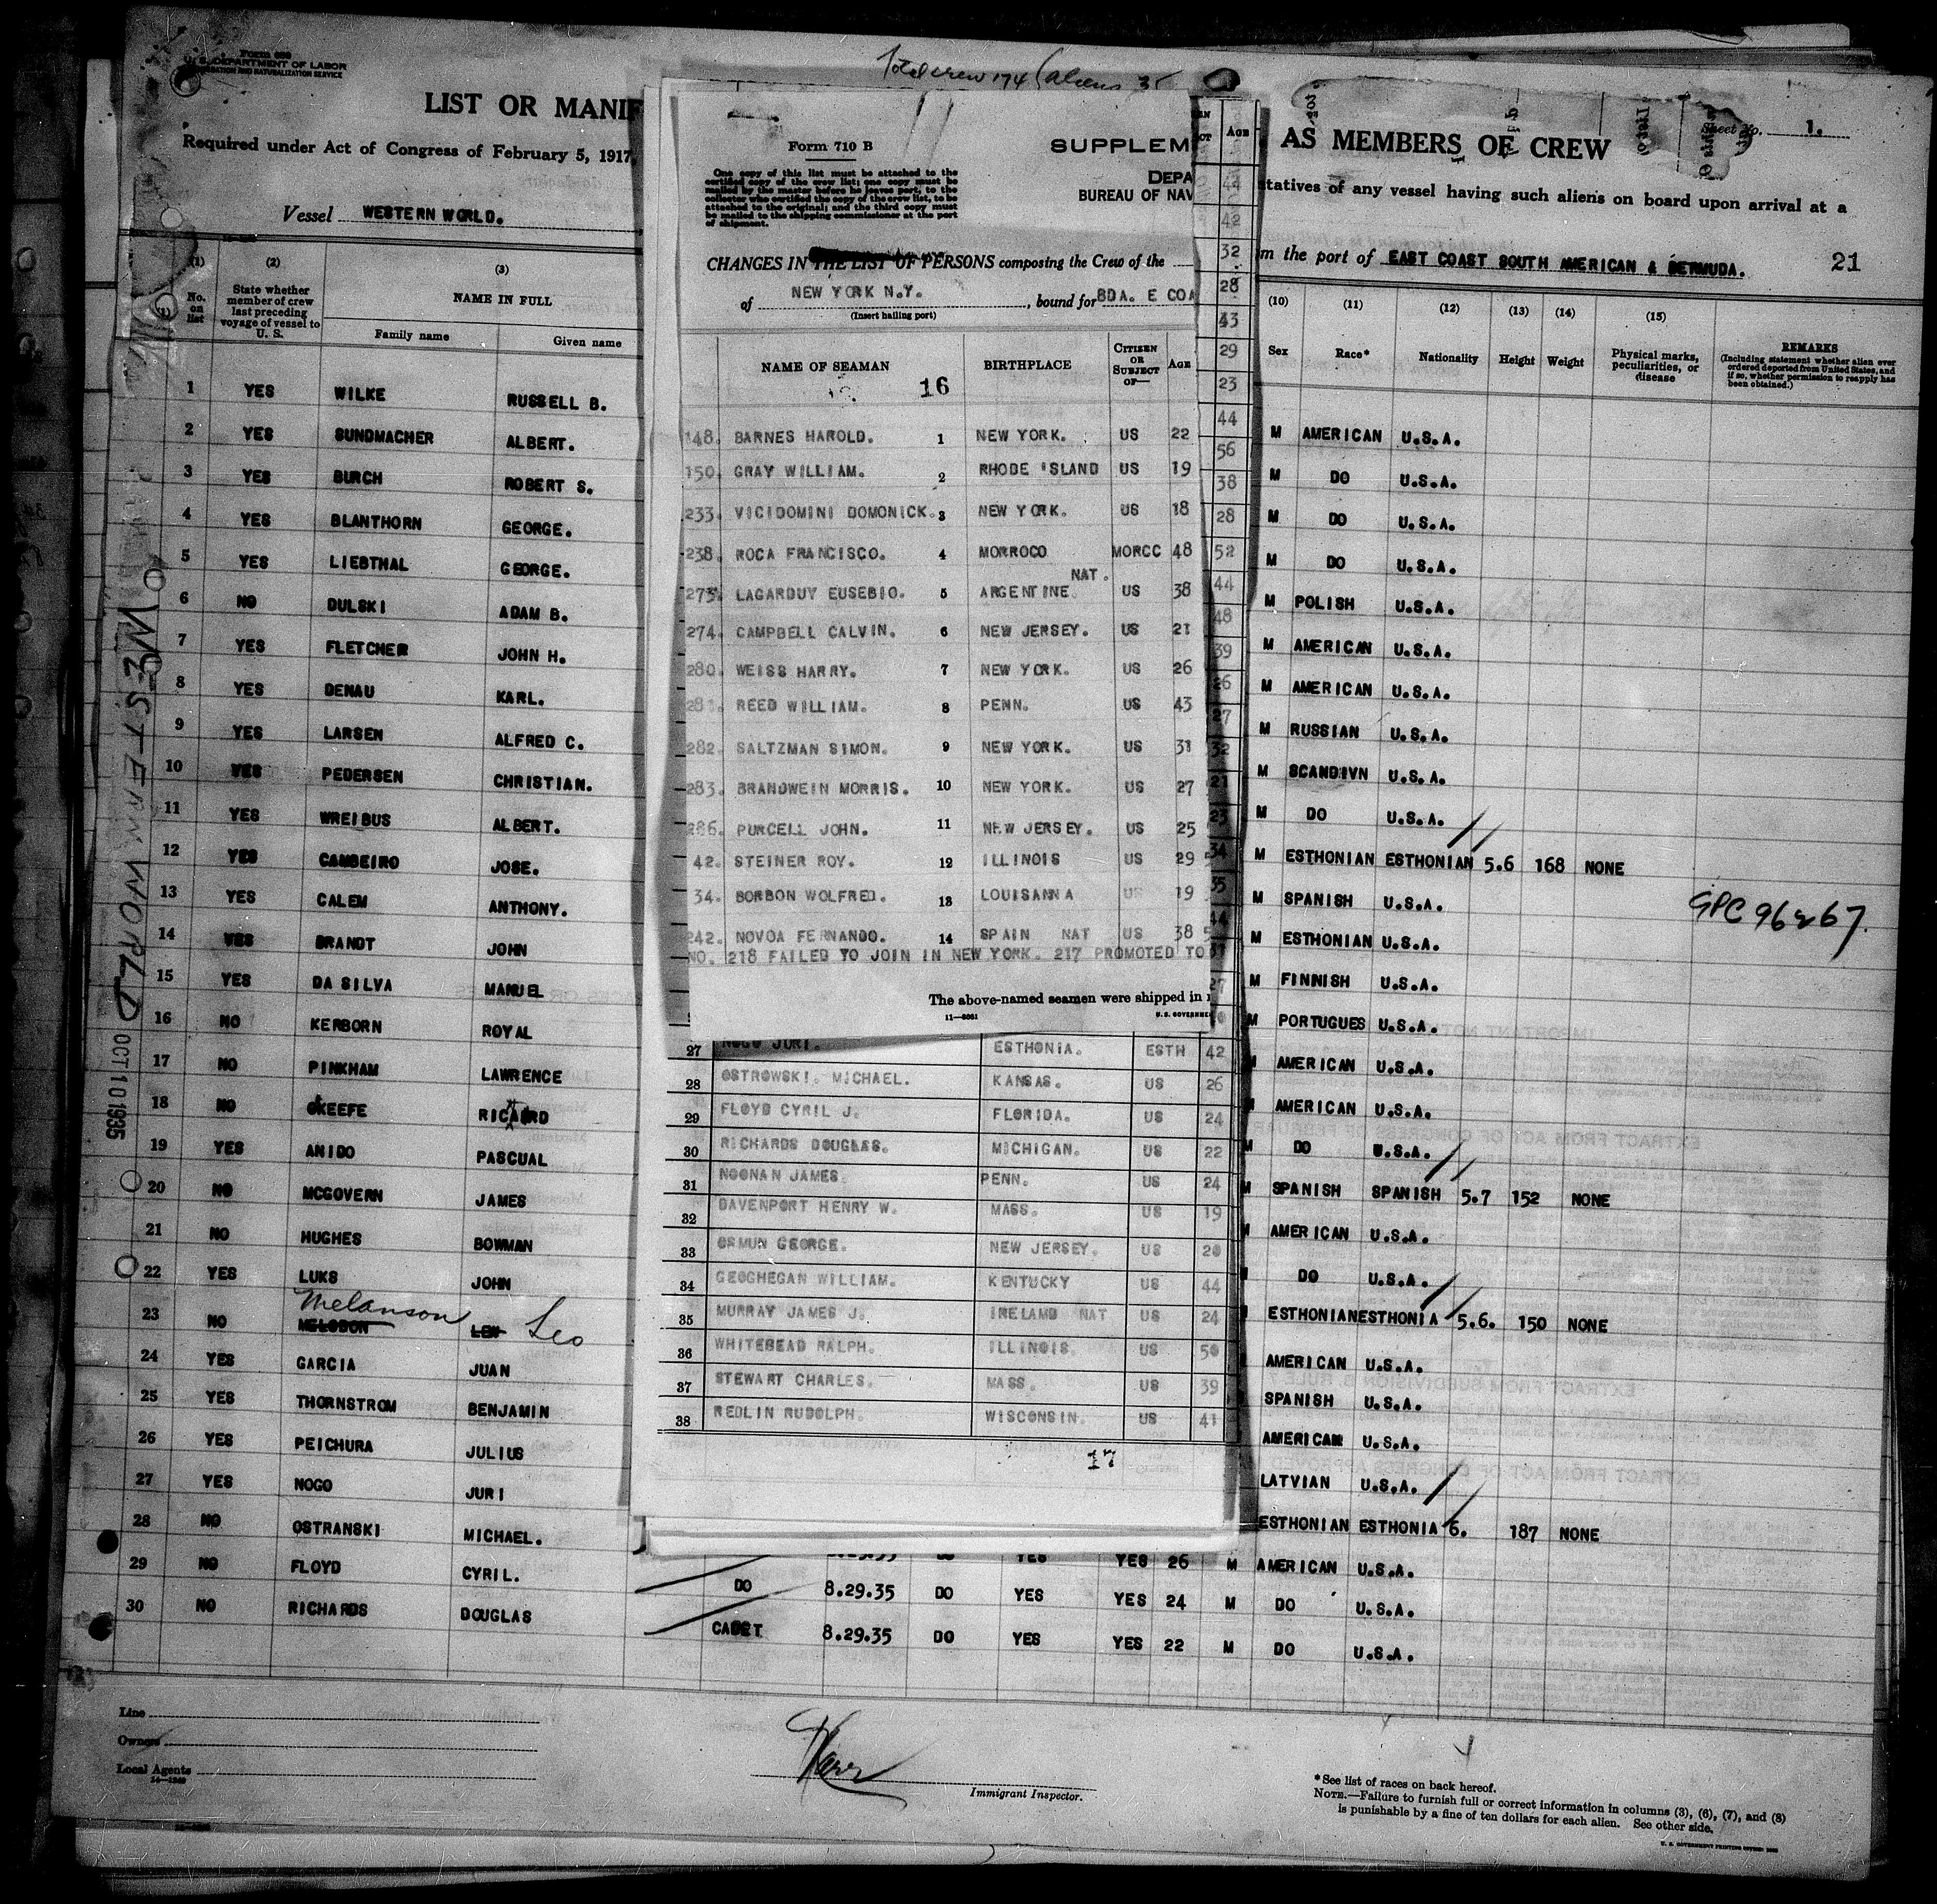 Total crew 174 (aliens 35
FORM 689
U. S. DEPARTMENT OF LABOR
IMMIGRATION AND NATURALIZATION SERVICE
LIST OR MANIF
Required under Act of Congress of February 5, 1917,
Vessel WESTERN WORLD.
AS MEMBERS OF CREW
Sheet No. 1.
tatives of any vessel having such aliens on board upon arrival at a
m the port of EAST COAST SOUTH AMERICAN & BERMUDA. 21
(1) (2) (3)
No. on list
State whether member of crew last preceding voyage of vessel to U. S.
NAME IN FULL
Family name Given name
1 YES WILKE RUSSELL B.
2 YES SUNDMACHER ALBERT.
3 YES BURCH ROBERT S.
4 YES BLANTHORN GEORGE.
5 YES LIEBTHAL GEORGE.
6 NO DULSKI ADAM B.
7 YES FLETCHER JOHN H.
8 YES DENAU KARL.
9 YES LARSEN ALFRED C.
10 YES PEDERSEN CHRISTIAN.
11 YES WREIBUS ALBERT.
12 YES CAMBEIRO JOSE.
13 YES CALEM ANTHONY.
14 YES BRANDT JOHN
15 YES DA SILVA MANUEL
16 NO KERBORN ROYAL
17 NO PINKHAM LAWRENCE
18 NO OKEEFE
19 YES ANIDO PASCUAL
20 NO MCGOVERN JAMES
21 NO HUGHES BOWMAN
22 YES LUKS JOHN
Melanson Leo
23 NO MELODON LEN
24 YES GARCIA JUAN
25 YES THORNSTROM BENJAMIN
26 YES PEICHURA JULIUS
27 YES NOGO JURI
28 NO OSTRANSKI MICHAEL.
29 NO FLOYD CYRIL.
30 NO RICHARDS DOUGLAS
WESTERN WORLD
OCT 10 1935
Form 710 B
SUPPLEM
DEPA
BUREAU OF NAV
One copy of this list must be attached to the
certified copy of the crew list; one copy must be
mailed by the master before he leaves port, to the
collector who certified the copy of the crew list, to be
attached to the original; and the third copy must
be mailed to the shipping commissioner at the port
of shipment.
CHANGES IN THE LIST OF PERSONS composing the Crew of the
of NEW YORK N.Y. , bound for BDA. E COA
(Insert hailing port)
NAME OF SEAMAN BIRTHPLACE CITIZEN OR SUBJECT OF— AGE
16
148. BARNES HAROLD. 1 NEW YORK. US 22
150. GRAY WILLIAM. 2 RHODE ISLAND US 19
233. VICIDOMINI DOMONICK. 3 NEW YORK. US 18
238. ROCA FRANCISCO. 4 MORROCO MORCC 48
NAT.
273. LAGARDUY EUSEBIO. 5 ARGENTINE. US 38
274. CAMPBELL CALVIN. 6 NEW JERSEY. US 21
280. WEISS HARRY. 7 NEW YORK. US 26
281. REED WILLIAM. 8 PENN. US 43
282. SALTZMAN SIMON. 9 NEW YORK. US 31
283. BRANDWEIN MORRIS. 10 NEW YORK. US 27
286. PURCELL JOHN. 11 NEW JERSEY. US 25
42. STEINER ROY. 12 ILLINOIS US 29
34. BORBON WOLFRED. 13 LOUISANNA US 19
242. NOVOA FERNANDO. 14 SPAIN NAT US 38
NO. 218 FAILED TO JOIN IN NEW YORK. 217 PROMOTED TO
The above-named seamen were shipped in
11—8061 U.S. GOVERNME
AGE
44
42
32
28
43
29
23
44
56
38
28
52
44
48
39
26
27
32
21
23
34
35
44
37
27
27 NOGO JURI. ESTHONIA. ESTH 42
28 OSTROWSKI. MICHAEL. KANSAS. US 26
29 FLOYD CYRIL J. FLORIDA. US 24
30 RICHARDS DOUGLAS. MICHIGAN. US 22
31 NOONAN JAMES. PENN. US 24
32 DAVENPORT HENRY W. MASS. US 19
33 ORMUN GEORGE. NEW JERSEY. US 20
34 GEOGHEGAN WILLIAM. KENTUCKY US 44
35 MURRAY JAMES J. IRELAND NAT US 24
36 WHITEHEAD RALPH. ILLINOIS. US 50
37 STEWART CHARLES. MASS. US 39
38 REDLIN RUDOLPH. WISCONSIN. US 41
17
(10) (11) (12) (13) (14) (15)
Sex Race* Nationality Height Weight Physical marks, peculiarities, or disease
REMARKS
(Including statement whether alien ever
ordered deported from United States, and
if so, whether permission to reapply has
been obtained.)
M AMERICAN U.S.A.
M DO U.S.A.
M DO U.S.A.
M DO U.S.A.
M POLISH U.S.A.
M AMERICAN U.S.A.
M AMERICAN U.S.A.
M RUSSIAN U.S.A.
M SCANDIVN U.S.A.
M DO U.S.A.
M ESTHONIAN ESTHONIAN 5.6 168 NONE
M SPANISH U.S.A. GPC 96267.
M ESTHONIAN U.S.A.
M FINNISH U.S.A.
M PORTUGUES U.S.A.
M AMERICAN U.S.A.
M AMERICAN U.S.A.
M DO U.S.A.
M SPANISH SPANISH 5.7 152 NONE
M AMERICAN U.S.A.
DO U.S.A.
ESTHONIAN ESTHONIA 5.6. 150 NONE
AMERICAN U.S.A.
SPANISH U.S.A.
AMERICAN U.S.A.
LATVIAN U.S.A.
ESTHONIAN ESTHONIA 6. 187 NONE
8.29.35 DO YES YES 26 M AMERICAN U.S.A.
DO 8.29.35 DO YES YES 24 M DO U.S.A.
CADET 8.29.35 DO YES YES 22 M DO U.S.A.
Line
Owners
Local Agents
14—1240
Immigrant Inspector.
*See list of races on back hereof.
NOTE.—Failure to furnish full or correct information in columns (3), (6), (7), and (8)
is punishable by a fine of ten dollars for each alien. See other side.